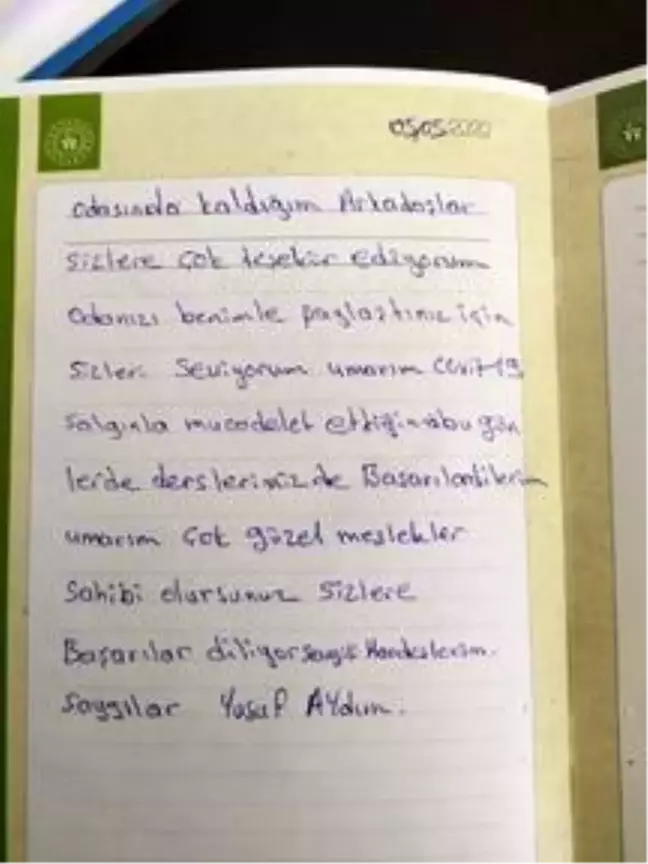 05/05/2020
odasında kaldığım Arkadaşlar
sizlere çok teşekür ediyorum
odanızı benimle paylaştınız için
sizleri seviyorum umarım Covit-19
salgınla mucadelet ettiğimiz bu gün
lerde derslerinizde Başarılar dilerim
umarım çok güzel meslekler
Sahibi olursunuz sizlere
Başarılar diliyor saygı
saygılar Yusuf Aydın.